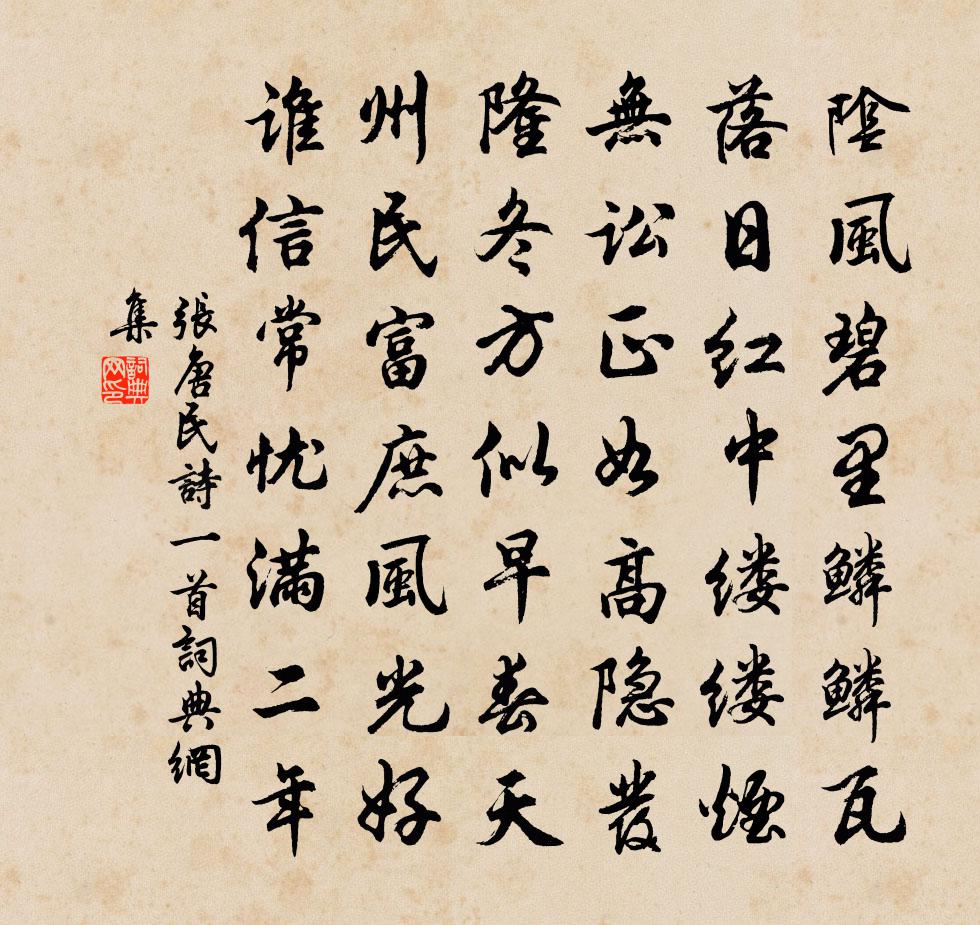 陰風碧里鱗鱗瓦
落日紅中缕缕煙
無訟正如高隐叢
隆冬方似早春天
州民富庶風光好
谁信常忧满二年
張唐民詩一首詞典網
集
詞典
网印